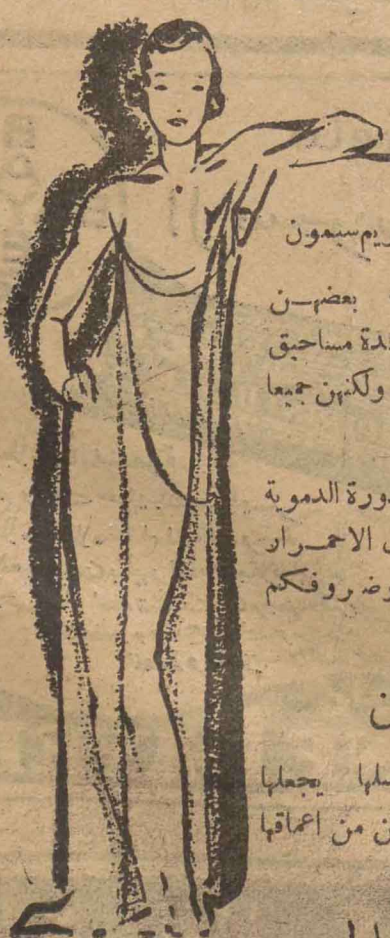 يم سيمون
بعضهـن
دة مساحيق
ولكنهن جميعا
ورة الدموية
الاحمـرار
روفكم
ن
لها يجعلها
ن من اعماقها